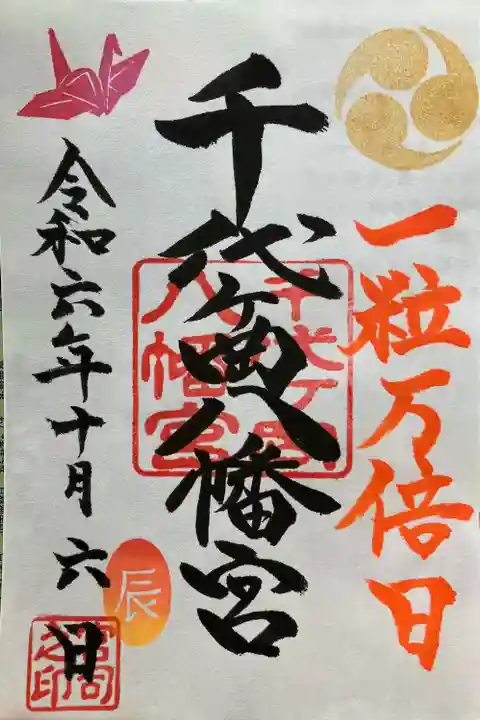 一粒万倍日
千代ヶ岡八幡宮
千代ヶ岡
八幡宮
令和六年十月六日
辰
宮司
之印